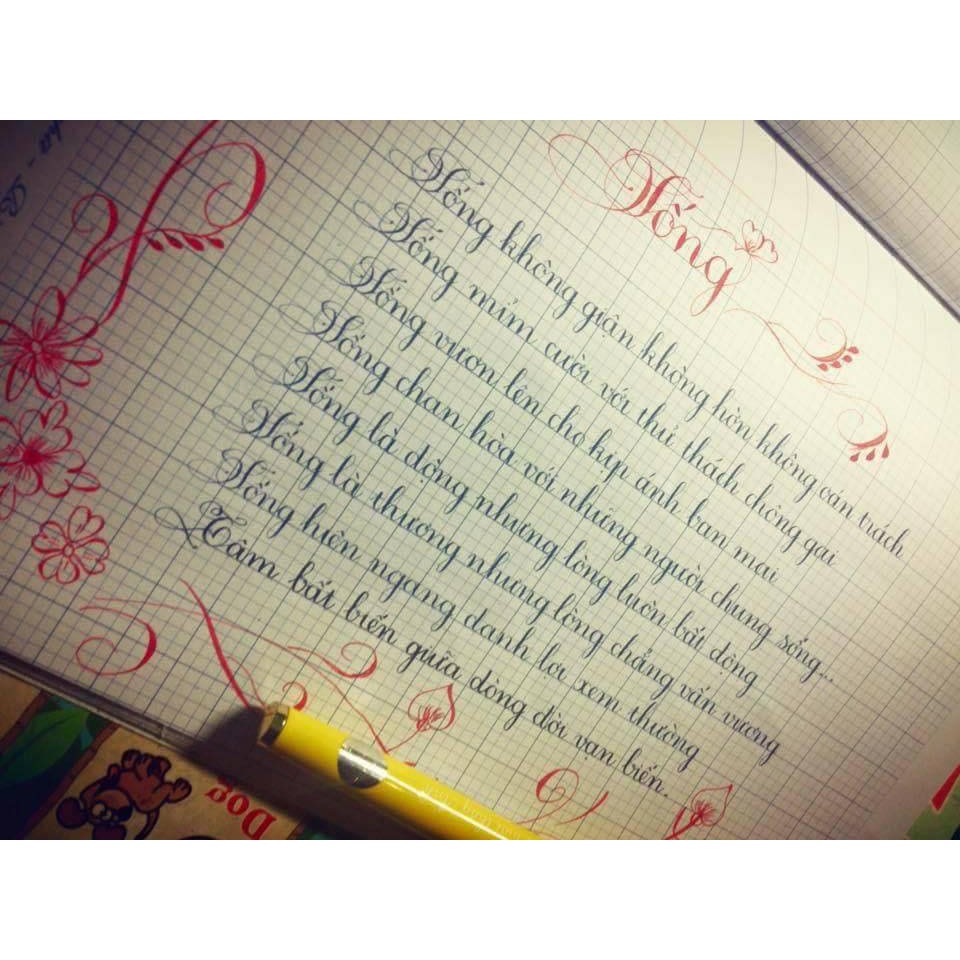 Sống
Sống không giận không hờn không oán trách
Sống mỉm cười với thử thách chông gai
Sống vươn lên cho kịp ánh ban mai
Sống chan hòa với những người chung sống...
Sống là động nhưng lòng luôn bất động
Sống là thương nhưng lòng chẳng vấn vương
Sống hiên ngang danh lợi xem thường
Tâm bất biến giữa dòng đời vạn biến.
Dog